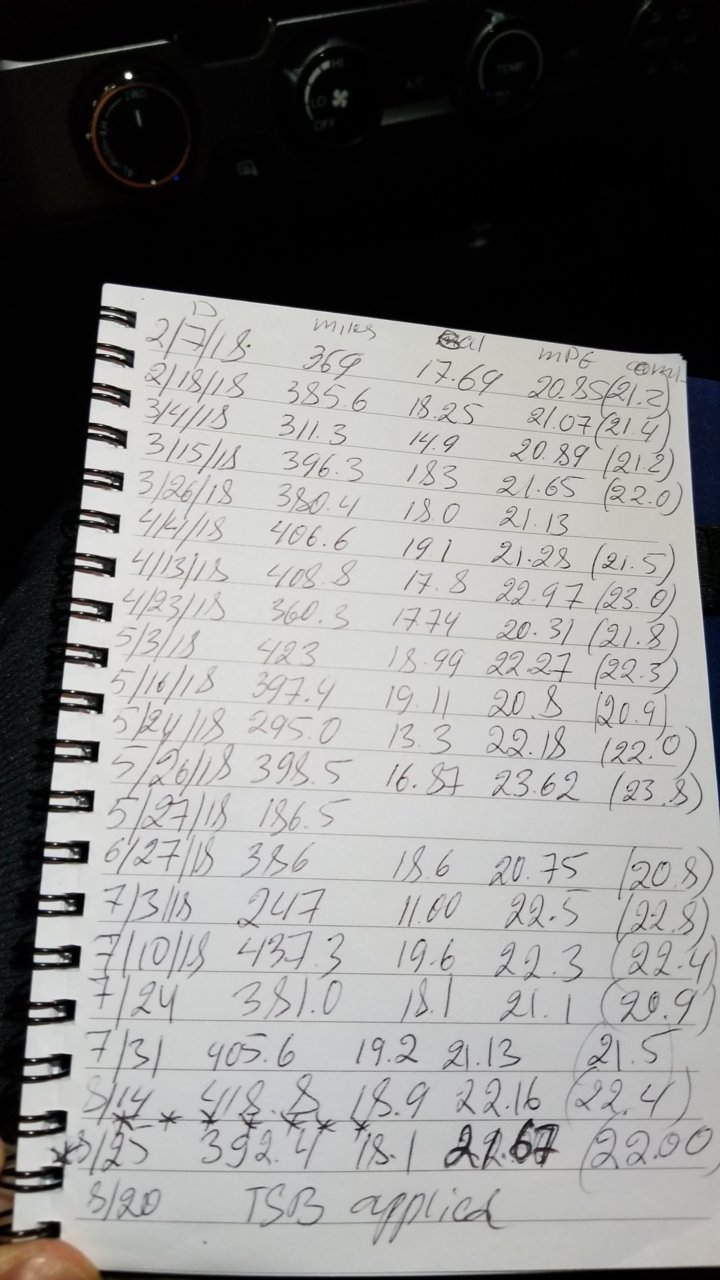 HI
LO
OFF
TEMP
D miles Gal MPG
2/7/18 369 17.69 20.85 (21.2)
2/18/18 385.6 18.25 21.07 (21.4)
3/4/18 311.3 14.9 20.89 (21.2)
3/15/18 396.3 183 21.65 (22.0)
3/26/18 380.4 18.0 21.13
4/4/18 406.6 191 21.28 (21.5)
4/13/18 408.8 17.8 22.97 (23.0)
4/23/18 360.3 17.74 20.31 (21.8)
5/3/18 423 18.99 22.27 (22.3)
5/16/18 397.4 19.11 20.8 (20.9)
5/24/18 295.0 13.3 22.18 (22.0)
5/26/18 398.5 16.87 23.62 (23.8)
5/27/18 186.5
6/27/18 386 18.6 20.75 (20.8)
7/3/18 247 11.00 22.5 (22.8)
7/10/18 437.3 19.6 22.3 (22.4)
7/24 381.0 18.1 21.1 (20.9)
7/31 405.6 19.2 21.13 (21.5)
8/14 418.8 18.9 22.16 (22.4)
* * * * * * *
*8/25 392.4 18.1 21.67 (22.00)
8/20 TSB applied